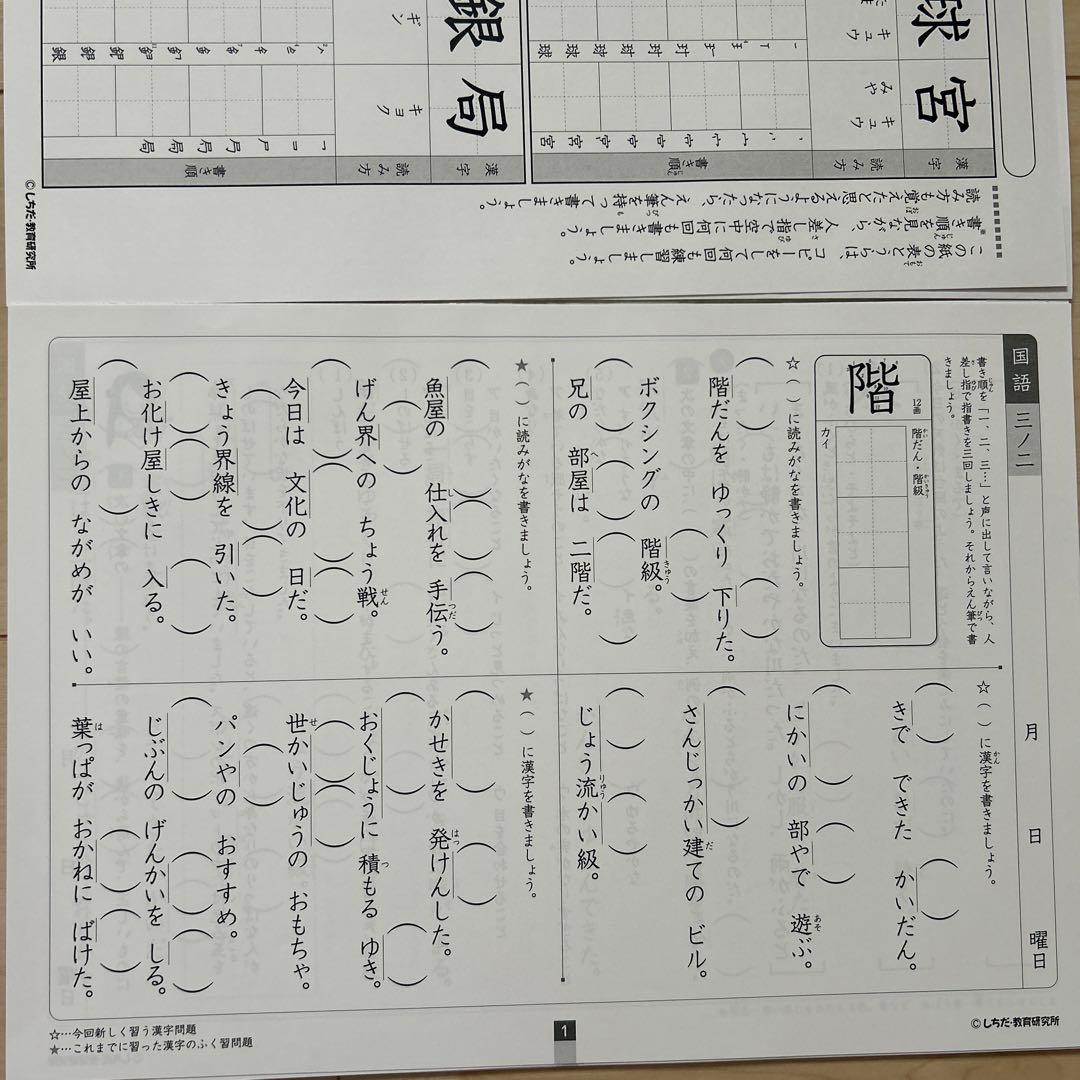 国語 三ノ二
月 日 曜日
書き順を「一、二、三…」と声に出して言いながら、人
差し指で指書きを三回しましょう。それからえん筆で書
きましょう。
階
12画
階だん・階級
カイ
☆( )に読みがなを書きましょう。
階だんを ゆっくり 下りた。
ボクシングの 階級。
兄の 部屋は 二階だ。
★( )に読みがなを書きましょう。
魚屋の 仕入れを 手伝う。
げん界への ちょう戦。
今日は 文化の 日だ。
きょう界線を 引いた。
お化け屋しきに 入る。
屋上からの ながめが いい。
☆( )に漢字を書きましょう。
きで できた かいだん。
にかいの 部やで 遊ぶ。
さんじっかい建ての ビル。
じょう流かい級。
★( )に漢字を書きましょう。
かせきを 発けんした。
おくじょうに 積もる ゆき。
世かいじゅうの おもちゃ。
パンやの おすすめ。
じぶんの げんかいを しる。
葉っぱが おかねに ばけた。
☆…今回新しく習う漢字問題
★…これまでに習った漢字のふく習問題
1
©しちだ・教育研究所
この紙の表とうらは、コピーをして何回も練習しましょう。
書き順を見ながら、人差し指で空中に何回も書きましょう。
読み方も覚えたと思えるようになったら、えん筆を持って書きましょう。
漢字
読み方
書き順
宮
キュウ
みや
球
キュウ
漢字
読み方
書き順
局
キョク
銀
ギン
©しちだ・教育研究所